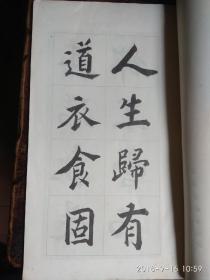 人生歸有
道衣食固
2018-7-15 10:59